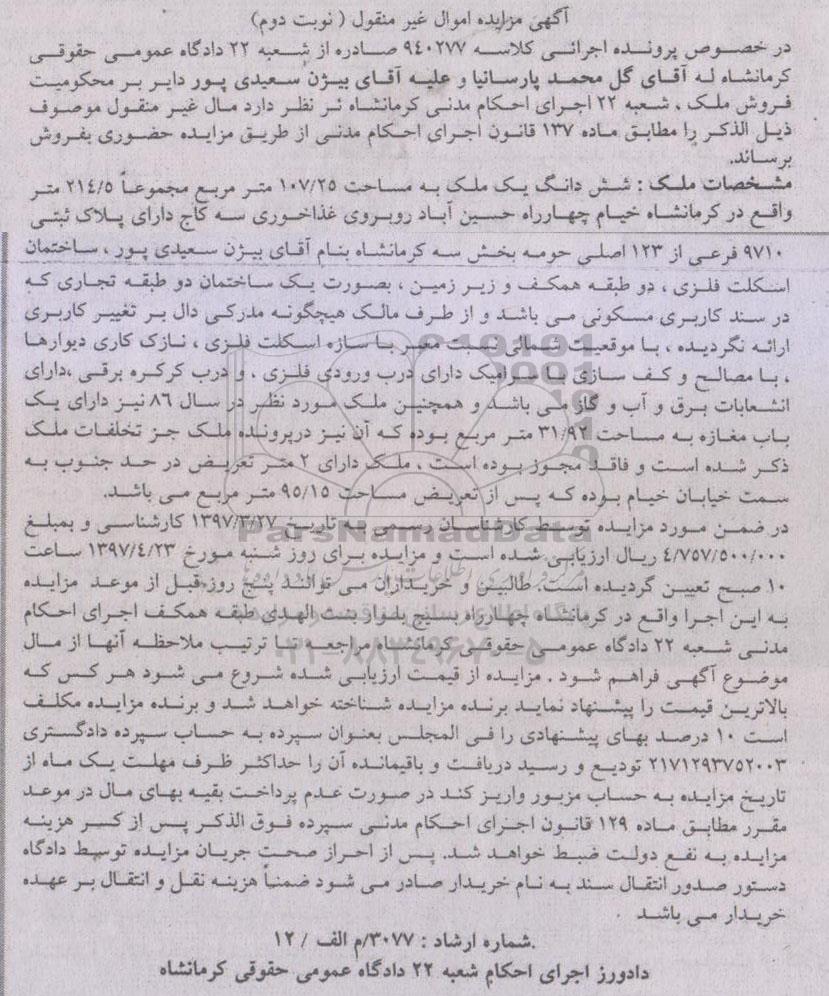 آگهی مزایده اموال غیر منقول ( نوبت دوم)
در خصوص پرونده اجرائی کلاسه ۹۴۰۲۷۷ صادره از شعبه ۲۲ دادگاه عمومی حقوقی
کرمانشاه له آقای گل محمد پارسانیا و علیه آقای بیژن سعیدی پور دایر بر محکومیت
فروش ملک ، شعبه ۲۲ اجرای احکام مدنی کرمانشاه در نظر دارد مال غیر منقول موصوف
ذیل الذکر را مطابق ماده ۱۳۷ قانون اجرای احکام مدنی از طریق مزایده حضوری بفروش
برساند.
مشخصات ملک : شش دانگ یک ملک به مساحت ۱۰۷/۲۵ متر مربع مجموعاً ۲۱۴/۵ متر
واقع در کرمانشاه خیام چهارراه حسین آباد روبروی غذاخوری سه کاج دارای پلاک ثبتی
۹۷۱۰ فرعی از ۱۲۳ اصلی حومه بخش سه کرمانشاه بنام آقای بیژن سعیدی پور ، ساختمان
اسکلت فلزی ، دو طبقه همکف و زیر زمین ، بصورت یک ساختمان دو طبقه تجاری که
در سند کاربری مسکونی می باشد و از طرف مالک هیچگونه مدرکی دال بر تغییر کاربری
ارائه نگردیده ، با موقعیت شمالی نسبت معبر با سازه اسکلت فلزی ، نازک کاری دیوارها
، با مصالح و کف سازی با سرامیک دارای درب ورودی فلزی ، و درب کرکره برقی ،دارای
انشعابات برق و آب و گاز می باشد و همچنین ملک مورد نظر در سال ۸۶ نیز دارای یک
باب مغازه به مساحت ۳۱/۹۲ متر مربع بوده که آن نیز درپرونده ملک جز تخلفات ملک
ذکر شده است و فاقد مجوز بوده است ، ملک دارای ۲ متر تعریض در حد جنوب به
سمت خیابان خیام بوده که پس از تعریض مساحت ۹۵/۱۵ متر مربع می باشد.
در ضمن مورد مزایده توسط کارشناسان رسمی به تاریخ ۱۳۹۷/۳/۲۷ کارشناسی و بمبلغ
۴/۷۵۷/۵۰۰/۰۰۰ ریال ارزیابی شده است و مزایده برای روز شنبه مورخ ۱۳۹۷/۴/۲۳ ساعت
۱۰ صبح تعیین گردیده است. طالبین و خریداران می توانند پنج روز قبل از موعد مزایده
به این اجرا واقع در کرمانشاه چهارراه بسیج بلوار بنت الهدی طبقه همکف اجرای احکام
مدنی شعبه ۲۲ دادگاه عمومی حقوقی کرمانشاه مراجعه تا ترتیب ملاحظه آنها از مال
موضوع آگهی فراهم شود . مزایده از قیمت ارزیابی شده شروع می شود هر کس که
بالاترین قیمت را پیشنهاد نماید برنده مزایده شناخته خواهد شد و برنده مزایده مکلف
است ۱۰ درصد بهای پیشنهادی را فی المجلس بعنوان سپرده به حساب سپرده دادگستری
۲۱۷۱۲۹۳۷۵۲۰۰۳ تودیع و رسید دریافت و باقیمانده آن را حداکثر ظرف مهلت یک ماه از
تاریخ مزایده به حساب مزبور واریز کند در صورت عدم پرداخت بقیه بهای مال در موعد
مقرر مطابق ماده ۱۲۹ قانون اجرای احکام مدنی سپرده فوق الذکر پس از کسر هزینه
مزایده به نفع دولت ضبط خواهد شد. پس از احراز صحت جریان مزایده توسط دادگاه
دستور صدور انتقال سند به نام خریدار صادر می شود ضمناً هزینه نقل و انتقال بر عهده
خریدار می باشد .
شماره ارشاد : ۳۰۷۷/م الف / ۱۲.
دادورز اجرای احکام شعبه ۲۲ دادگاه عمومی حقوقی کرمانشاه
ParsNamadData
۰۲۱-۸۸۳۴۹۶۷۰-۵